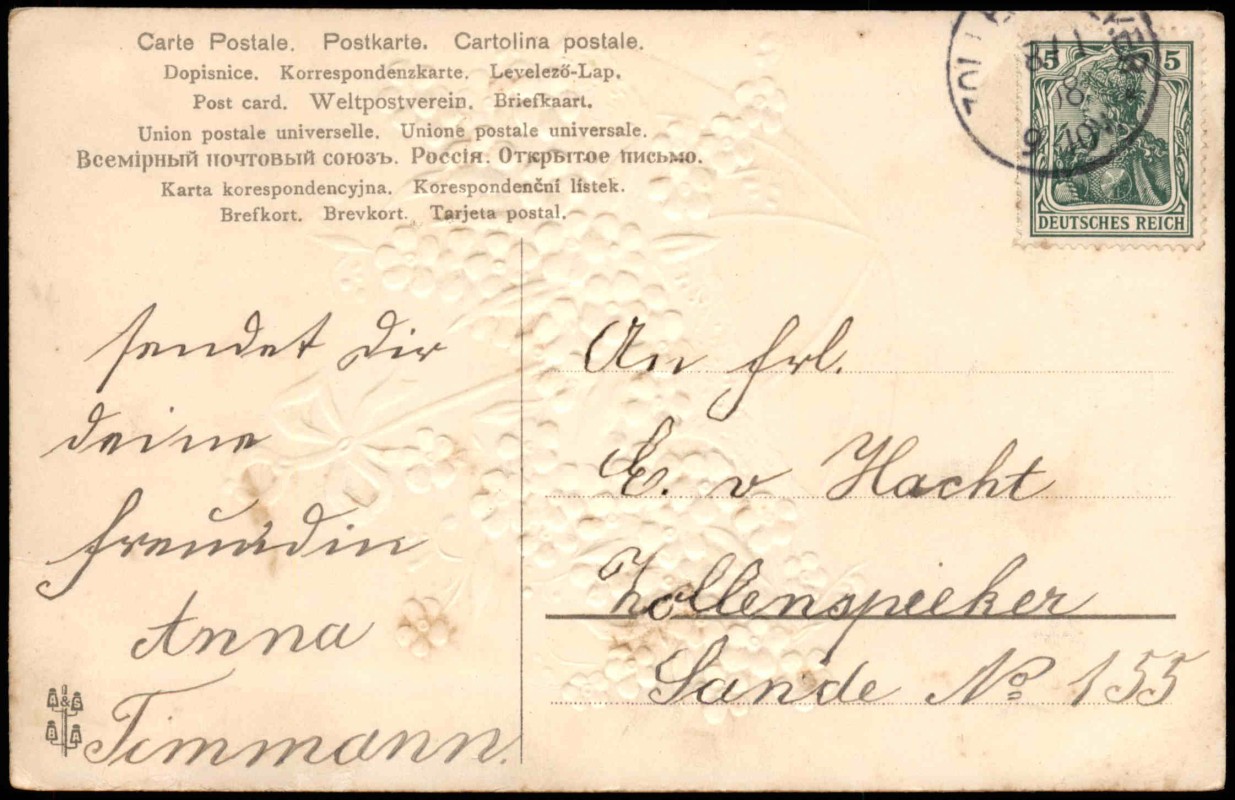 Carte Postale. Postkarte. Cartolina postale.
Dopisnice. Korrespondenzkarte. Levelező-Lap.
Post card. Weltpostverein. Briefkaart.
Union postale universelle. Unione postale universale.
Всемірный почтовый союзъ. Россія. Открытое письмо.
Karta korespondencyjna. Korespondenční lístek.
Brefkort. Brevkort. Tarjeta postal.
5 5
DEUTSCHES REICH
sendet dir
deine
freundin
Anna
Timmann.
An Frl.
E. v Hacht
Zollenspieker
Sande No 155
A & S
B A